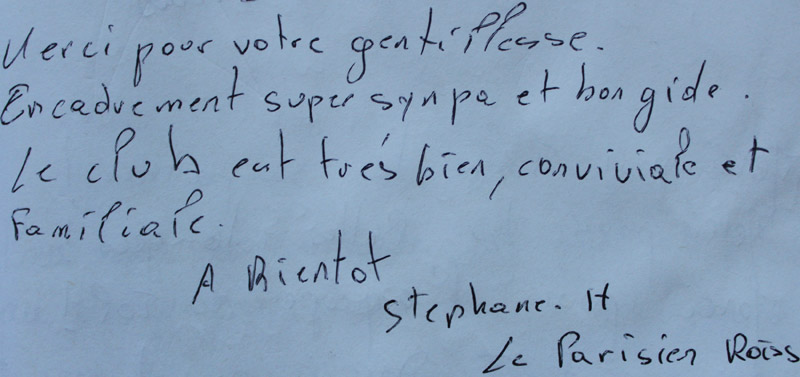 Merci pour votre gentillesse.
Encadrement super sympa et bon gide.
Le club est très bien, conviviale et
Familiale.
A Bientot
Stephane. H
Le Parisien